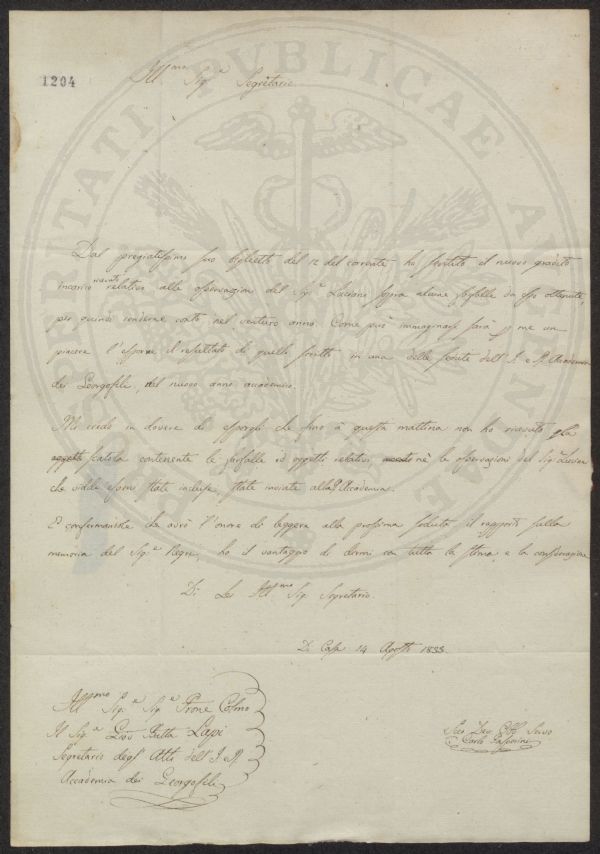 1204
Ill.mo Sig.e Segretario
Dal pregiatissimo suo biglietto del 12 del corrente ho sentito il nuovo gradito
incarico relativo alle osservazioni del Sig.e Luciani sopra alcune farfalle da esso ottenute,
per quindi renderne conto nel venturo anno. Come può immaginarsi sarà p me un
piacere l'esporre il resultato di quelli scritti in una delle sedute dell'I. e R. Accademia
dei Georgofili, del nuovo anno accademico.
Mi credo in dovere di esporgli che fino à questa mattina non ho ricevuto la
scatola contenente le farfalle ed oggetti relativi, nè le osservazioni del Sig.
che vidde essere state inviate alla R. Accademia.
E confermandole che avrò l'onore di leggere alla prossima seduta il rapporto sulla
memoria del Sig.e ho il vantaggio di dirmi con tutta la stima, e la considerazione
Di Lei Ill.mo Sig. Segretario.
Di Casa 14 Agosto 1835.
Ill.mo Sig.e Sig.e Prone Colmo
Il Sig.e Gio Batta Lapi
Segretario degl'Atti dell'I. R.
Accademia dei Georgofili
Suo Dev. Obb. Servo
Carlo Passerini
PROSPERITATI PUBLICAE AUGENDAE